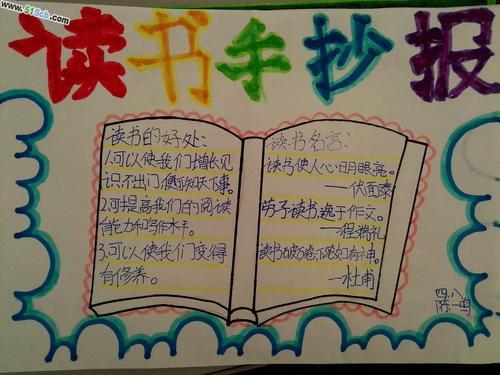 www.51Scb.com
读书手抄报
读书的好处:
1.可以使我们增长见
识,不出门便可知天下事。
2.可提高我们的阅读
能力和写作水平。
3.可以使我们变得
有修养。
读书名言:
读书使人心明眼亮。
—伏面泰
劳于读书,逸于作文。
—程端礼
读书破万卷,下笔如有神。
—杜甫
四、八